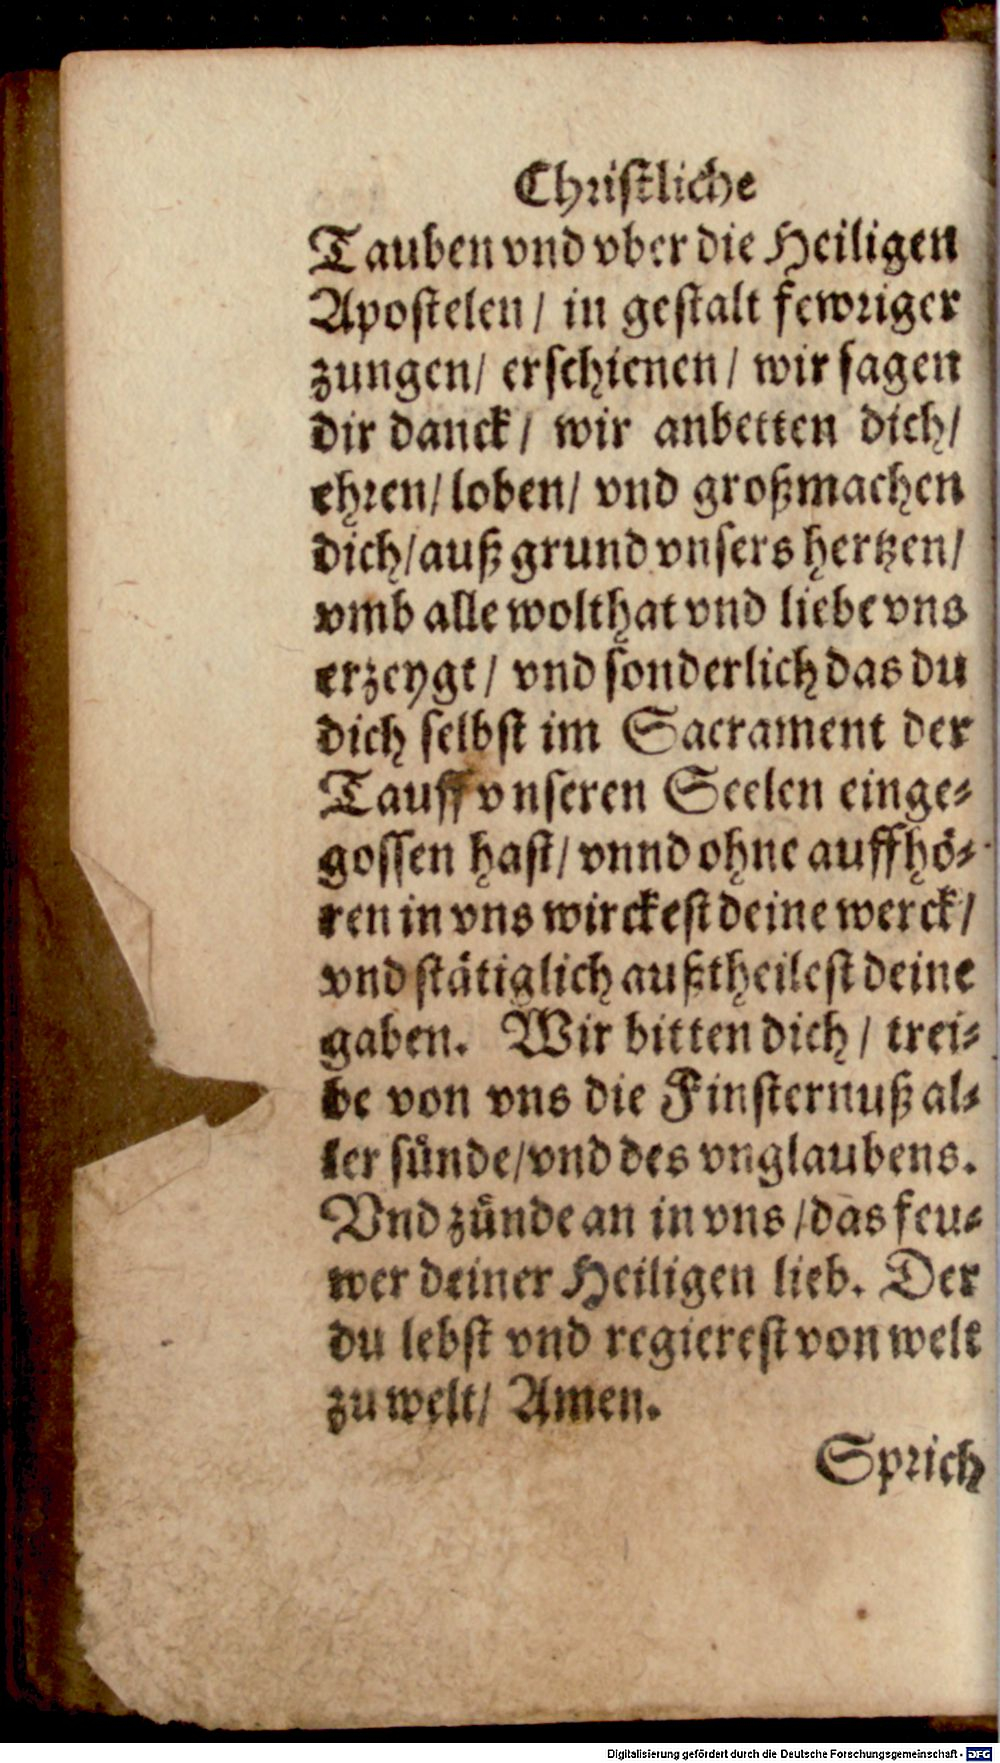 Christliche
Tauben vnd vber die Heiligen
Apostelen / in gestalt fewriger
zungen / erschienen / wir sagen
dir danck / wir anbetten dich /
ehren / loben / vnd großmachen
dich / auß grund vnsers hertzen /
vmb alle wolthat vnd liebe vns
erzeygt / vnd sonderlich das du
dich selbst im Sacrament der
Tauff vnseren Seelen einge⸗
gossen hast / vnnd ohne auffhö⸗
ren in vns wirckest deine werck /
vnd stätiglich außtheilest deine
gaben. Wir bitten dich / trei⸗
be von vns die Finsternuß al⸗
ler sünde / vnd des vnglaubens.
Vnd zünde an in vns / das feu⸗
wer deiner Heiligen lieb. Der
du lebst vnd regierest von welt
zu welt / Amen.
Sprich
Digitalisierung gefördert durch die Deutsche Forschungsgemeinschaft - DFG